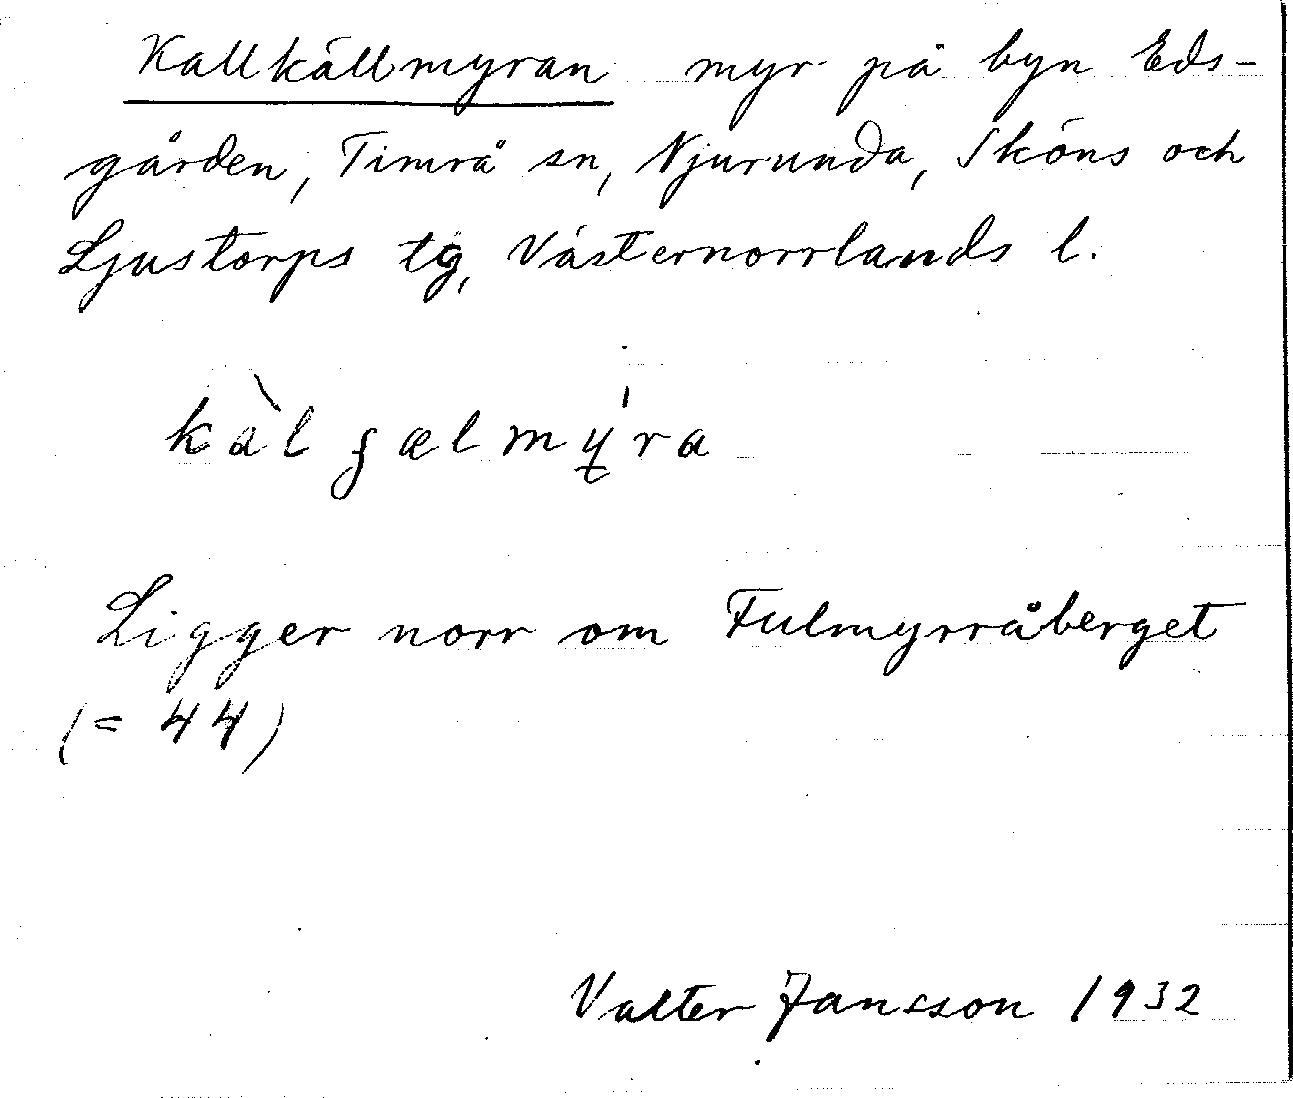 Kallkällmyran myr på byn Eds-
gården, Timrå sn, Njurunda, Sköns och
Ljustorps tg, Västernorrlands l.
kàlʂælmýra
Ligger norr om Fulmyrråberget
(= 44)
Valter Jansson 1932